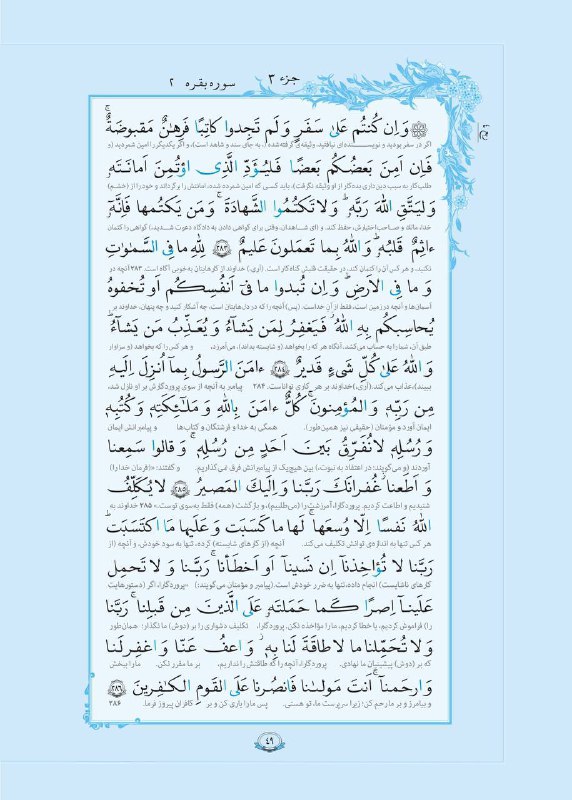 جزء ۳ سوره بقره ۲
وَ اِن كُنتُم عَلىٰ سَفَرٍ وَ لَم تَجِدوا كاتِبًا فَرِهٰنٌ مَقبوضَةٌ ۖ
اگر در سفر بودید و نویسنده‌ای نیافتید، وثیقه‌ای گرفته شده (به جای سند و شاهد است)، و اگر یکدیگر را امین شمردید (و
فَاِن اَمِنَ بَعضُكُم بَعضًا فَليُؤَدِّ الَّذِى اؤتُمِنَ اَمانَتَهٗ
طلبکار به سبب دین‌داری بدهکار از او وثیقه نگرفت)، باید کسی که امین شمرده شده، امانتش را برگرداند و خود را از (خشم)
وَ ليَتَّقِ اللهَ رَبَّهٗ ۗ وَ لا تَكتُمُوا الشَّهادَةَ ۚ وَ مَن يَكتُمها فَاِنَّهٗ
خدا، مالک و صاحب‌اختیارش، حفظ کند. و (ای شاهدان، وقتی برای گواهی دادن به دادگاه دعوت شدید)، گواهی را کتمان
ءاثِمٌ قَلبُهٗ ۗ وَ اللهُ بِما تَعمَلونَ عَليمٌ ﴿٢٨٣﴾ لِلّٰهِ ما فِى السَّماواتِ
نکنید، و هر کس آن را کتمان کند، در حقیقت قلبش گناه‌کار است. (آری،) خداوند از کارهایتان به‌خوبی آگاه است. ۲۸۳ آنچه در
وَ ما فِى الاَرضِ ۗ وَ اِن تُبدوا ما فى اَنفُسِكُم اَو تُخفوهُ
آسمان‌ها و آنچه در زمین است، فقط از آنِ خداست. (پس) آنچه را که در دل‌هایتان است، چه آشکار کنید و چه پنهان، خداوند بر
يُحاسِبكُم بِهِ اللهُ ۖ فَيَغفِرُ لِمَن يَشاءُ وَ يُعَذِّبُ مَن يَشاءُ ۗ
طبق آن، شما را به حساب می‌کشد. آنگاه هر که را بخواهد (و شایسته بداند)، می‌آمرزد، و هر کس را که بخواهد (و سزاوار
وَ اللهُ عَلىٰ كُلِّ شَىءٍ قَديرٌ ﴿٢٨٤﴾ ءامَنَ الرَّسولُ بِما اُنزِلَ اِلَيهِ
ببیند)، عذاب می‌کند. (آری،) خداوند بر هر کاری تواناست. ۲۸۴ پیامبر به آنچه از سوی پروردگارش بر او نازل شد،
مِن رَبِّهٖ وَ المُؤمِنونَ ۚ كُلٌّ ءامَنَ بِاللهِ وَ مَلائِكَتِهٖ وَ كُتُبِهٖ
ایمان آورد و مؤمنان (حقیقی نیز همین‌طور). همگی به خدا و فرشتگان و کتاب‌ها و پیامبرانش ایمان
وَ رُسُلِهٖ لا نُفَرِّقُ بَينَ اَحَدٍ مِن رُسُلِهٖ ۚ وَ قالوا سَمِعنا
آوردند (و می‌گویند: در اعتقاد به نبوت،) بین هیچ‌یک از پیامبرانش فرق نمی‌گذاریم. و گفتند: «(فرمان خدا را)
وَ اَطَعنا ۖ غُفرانَكَ رَبَّنا وَ اِلَيكَ المَصيرُ ﴿٢٨٥﴾ لا يُكَلِّفُ
شنیدیم و اطاعت کردیم. پروردگارا، آمرزشت را (می‌طلبیم)، و بازگشت (همه) فقط به‌سوی توست.» ۲۸۵ خداوند به
اللهُ نَفسًا اِلّا وُسعَها ۚ لَها ما كَسَبَت وَ عَلَيها مَا اكتَسَبَت ۗ
هر کس تنها به اندازه‌ی توانش تکلیف می‌کند. آنچه (از کارهای شایسته) کرده، تنها به سود خودش، و آنچه (از
رَبَّنا لا تُؤاخِذنا اِن نَسينا اَو اَخطَأنا ۚ رَبَّنا وَ لا تَحمِل
کارهای ناشایست) انجام داده، تنها به ضرر خودش است. (پیامبر و مؤمنان می‌گویند:) «پروردگارا، اگر (دستورهایت
عَلَينا اِصرًا كَما حَمَلتَهٗ عَلَى الَّذينَ مِن قَبلِنا ۚ رَبَّنا
را) فراموش کردیم، یا خطا کردیم، ما را مؤاخذه نکن. پروردگارا، تکلیف دشواری را بر (دوش) ما نگذار؛ همان‌طور
وَ لا تُحَمِّلنا ما لا طاقَةَ لَنا بِهٖ ۖ وَ اعفُ عَنّا وَ اغفِر لَنا
که بر (دوش) پیشینیان ما نهادی. پروردگارا، آنچه را که طاقتش را نداریم، بر ما مقرر نکن. ما را ببخش
وَ ارحَمنا ۚ اَنتَ مَولىٰنا فَانصُرنا عَلَى القَومِ الكافِرينَ ﴿٢٨٦﴾
و بیامرز و بر ما رحم کن؛ زیرا سرپرست ما، تو هستی. پس ما را یاری کن و بر کافران پیروز فرما. ۲۸۶
٤٩